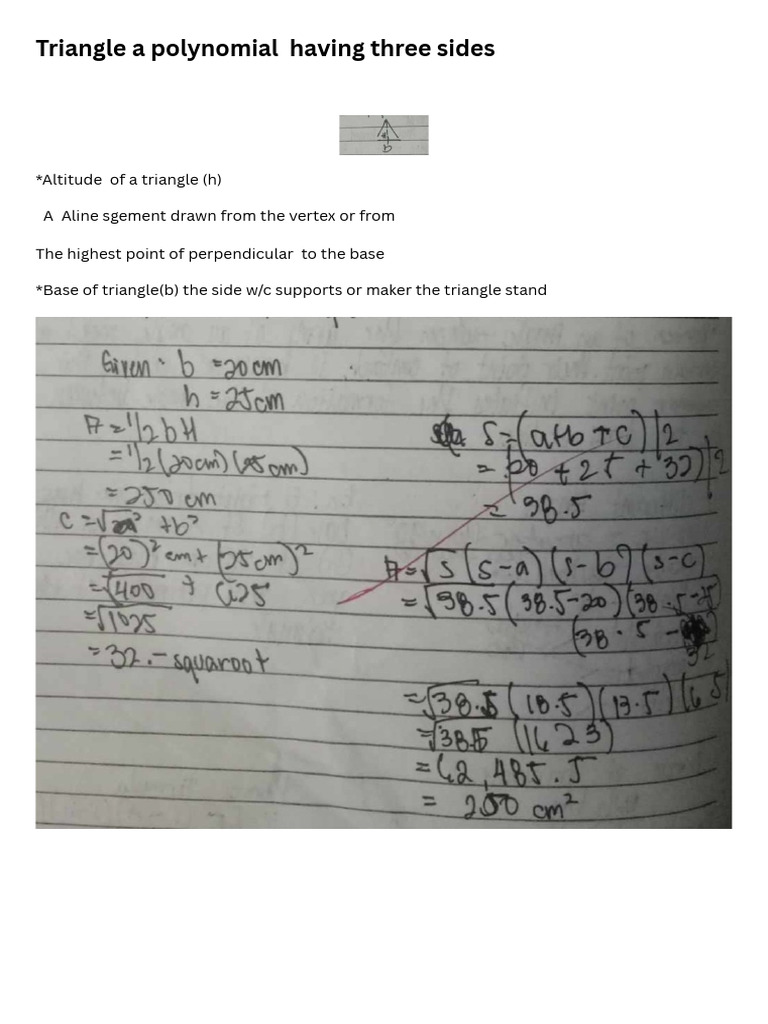 Triangle a polynomial having three sides
b
*Altitude of a triangle (h)
A Aline sgement drawn from the vertex or from
The highest point of perpendicular to the base
*Base of triangle(b) the side w/c supports or maker the triangle stand
Given: b = 20 cm
h = 25 cm
A = 1/2 bH
= 1/2 (20cm) (25cm)
= 250 cm
c = √a² + b²
= (20)² cm + (25cm)²
= √400 + 625
= √1025
= 32.- squaroot
S = (a+b+c)/2
= (20 + 25 + 32)/2
= 38.5
A = √s (s-a) (s-b) (s-c)
= √38.5 (38.5-20) (38.5-25)
(38.5 - 32
= √38.5 (18.5) (13.5) (6.5)
= √38.5 (1623)
= 62,485.5
= 250 cm²